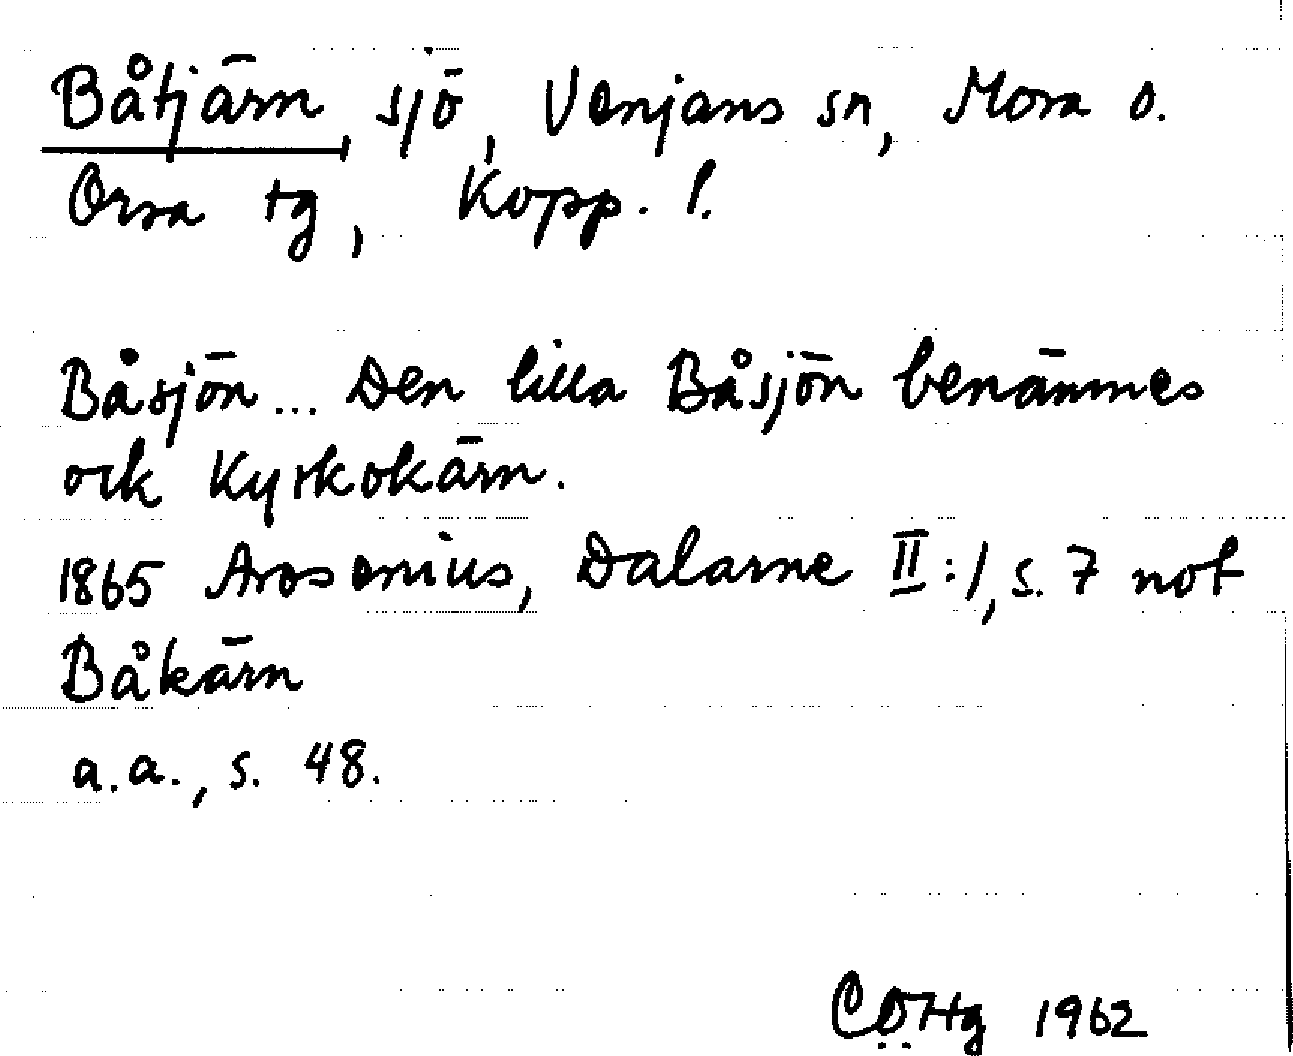 Båtjärn, sjö, Venjans sn, Mora o.
Orsa tg, Kopp. l.
Båsjön... Den lilla Båsjön benämnes
ock Kyrkokärn.
1865 Arosenius, Dalarne II:1, s. 7 not
Båkärn
a.a., s. 48.
CÖHg 1962